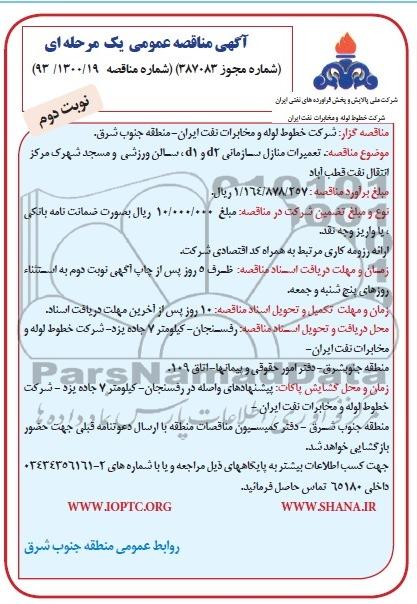 آگهی مناقصه عمومی یک مرحله ای
(شماره مجوز ۳۸۷۰۸۳) (شماره مناقصه ۹۳/۱۳۰۰/۱۹)
شرکت ملی پالایش و پخش فرآورده های نفتی ایران
شرکت خطوط لوله و مخابرات نفت ایران
نوبت دوم
مناقصه گزار: شرکت خطوط لوله و مخابرات نفت ایران-منطقه جنوب شرق.
موضوع مناقصه:. تعمیرات منازل سازمانی d2 و d1 ، سالن ورزشی و مسجد شهرک مرکز
انتقال نفت قطب آباد
مبلغ برآورد مناقصه : ۱/۱۶۴/۸۷۸/۲۵۷ ریال.
نوع و مبلغ تضمین شرکت در مناقصه: مبلغ ۱۰/۰۰۰/۰۰۰ ریال بصورت ضمانت نامه بانکی
، یا واریز وجه نقد.
ارائه رزومه کاری مرتبط به همراه کد اقتصادی شرکت.
زمان و مهلت دریافت اسناد مناقصه: ظرف ۵ روز پس از چاپ آگهی نوبت دوم به استثناء
روزهای پنج شنبه و جمعه.
زمان و مهلت تکمیل و تحویل اسناد مناقصه: ۱۰ روز پس از آخرین مهلت دریافت اسناد.
محل دریافت و تحویل اسناد مناقصه: رفسنجان-کیلومتر ۷ جاده یزد-شرکت خطوط لوله و
مخابرات نفت ایران-
منطقه جنوبشرق-دفتر امور حقوقی و پیمانها-اتاق ۱۰۹.
زمان و محل گشایش پاکات: پیشنهادهای واصله در رفسنجان-کیلومتر ۷ جاده یزد - شرکت
خطوط لوله و مخابرات نفت ایران -
منطقه جنوب شرق - دفتر کمیسیون مناقصات منطقه با ارسال دعوتنامه قبلی جهت حضور
بازگشایی خواهد شد.
جهت کسب اطلاعات بیشتر به پایگاههای ذیل مراجعه و یا با شماره های ۲-۰۳۴۳۴۳۵۶۱۶۱
داخلی ۶۵۱۸۰ تماس حاصل فرمائید.
WWW.SHANA.IR
WWW.IOPTC.ORG
روابط عمومی منطقه جنوب شرق